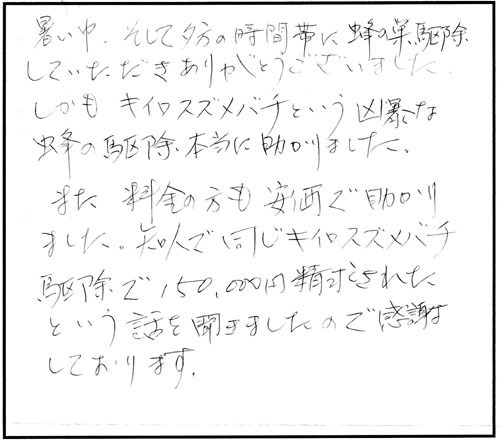 暑い中、そして夕方の時間帯に蜂の巣駆除
していただきありがとうございました。
しかもキイロスズメバチという凶暴な
蜂の駆除、本当に助かりました。
また料金の方も安価で助かり
ました。知人で同じキイロスズメバチ
駆除で150,000円精求された
という話を聞きましたので感謝
しております。